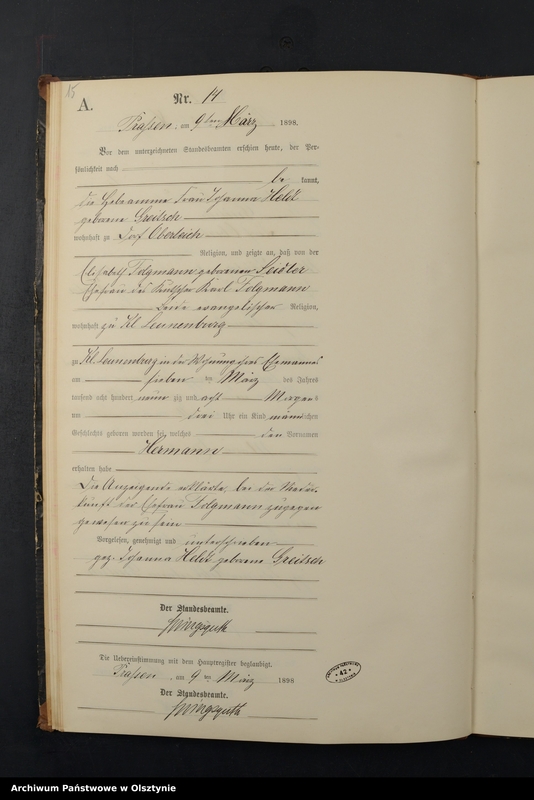 15
A.
Nr. 14
Prassen, am 9ten März 1898.
Vor dem unterzeichneten Standesbeamten erschien heute, der Per-
sönlichkeit nach
be kannt,
die Hebeamme Frau Johanna Held
geborene Greitsch
wohnhaft zu Dorf Oberteich
Religion, und zeigte an, daß von der
Elisabeth Folgmann geborenen Seidler
Ehefrau des Kutscher Karl Folgmann
beide evangelischer Religion,
wohnhaft zu Kl Leunenburg
zu Kl. Leunenburg in der Wohnung ihres Ehemannes
am sieben ten März des Jahres
tausend acht hundert neun zig und acht Morgens
um drei Uhr ein Kind männlichen
Geschlechts geboren worden sei, welches den Vornamen
Hermann
erhalten habe.
Die Anzeigende erklärte, bei der Nieder-
kunft der Ehefrau Folgmann zugegen
gewesen zu sein
Vorgelesen, genehmigt und unterschrieben
gez. Johanna Held geborene Greitsch
Der Standesbeamte.
Die Uebereinstimmung mit dem Hauptregister beglaubigt.
Prassen, am 9 ten März 1898
Der Standesbeamte.
42
Archiwum Państwowe w Olsztynie